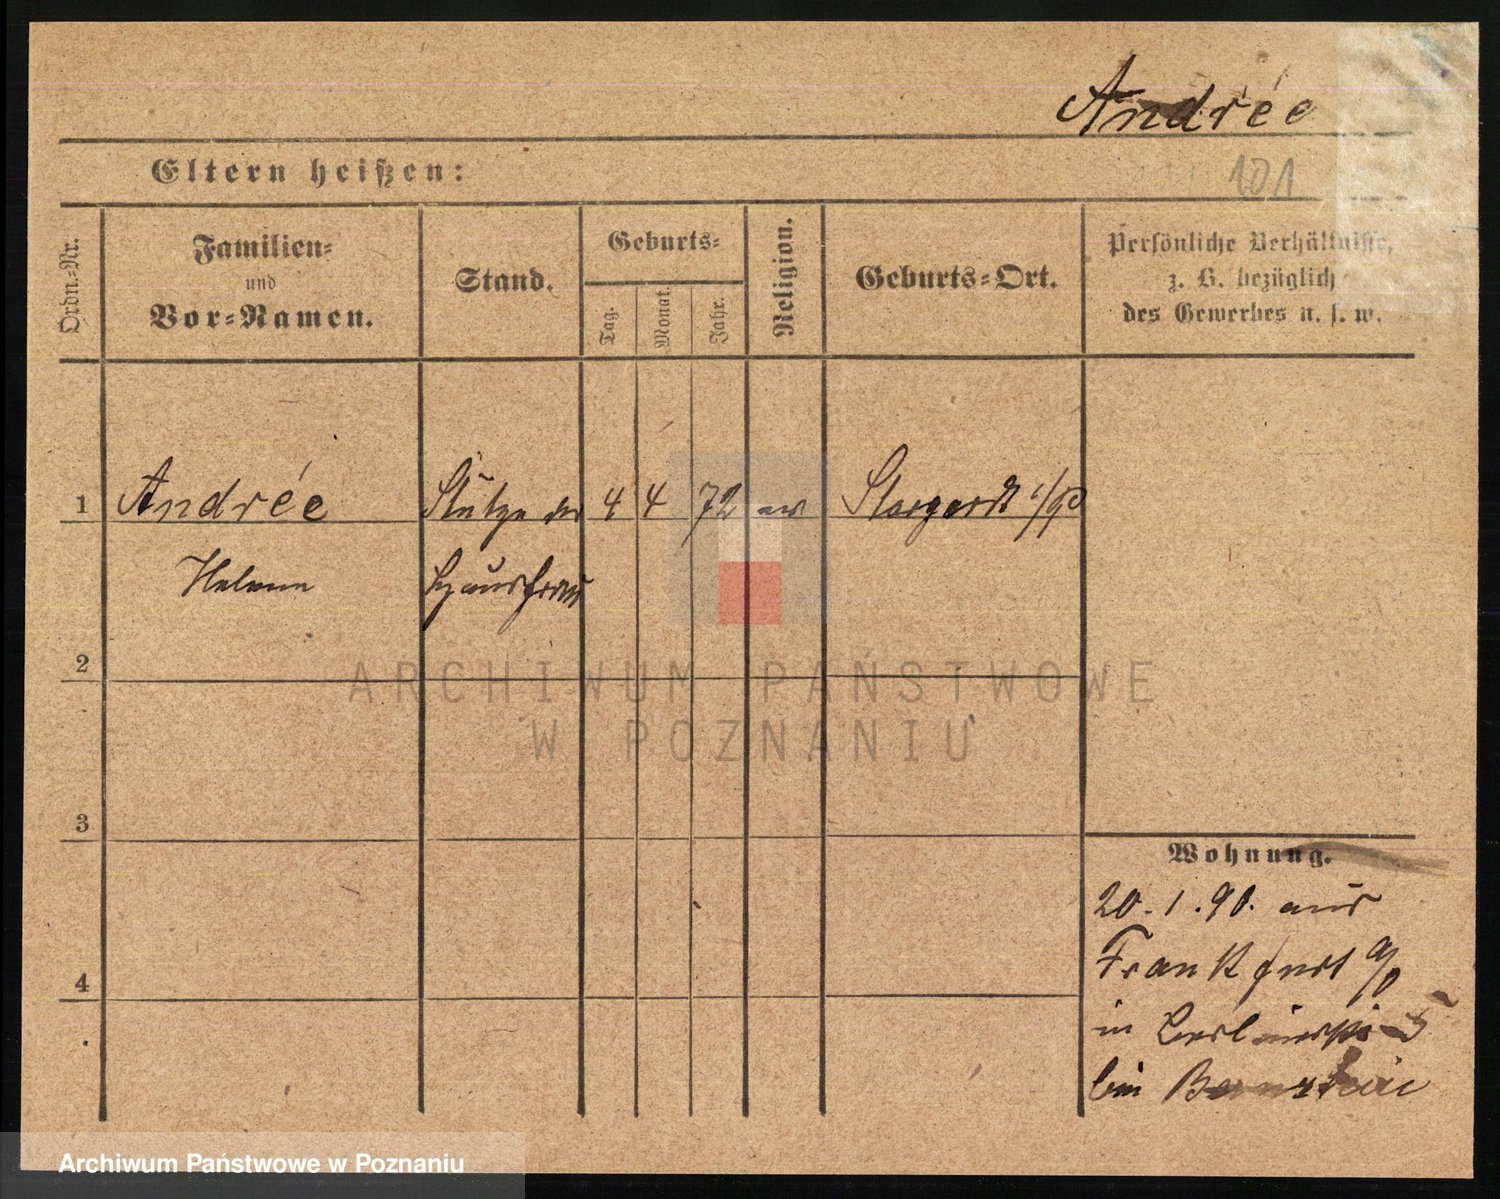 Andrée
Eltern heißen:
101
Ordn.-Nr.
Familien-
und
Vor-Namen.
Stand.
Geburts-
Tag.
Monat.
Jahr.
Religion.
Geburts-Ort.
Persönliche Verhältnisse,
z. B. bezüglich
des Gewerbes u. s. w.
1 Andrée Stütze der 4 4 72 ev Stargardt i/P
Helene Hausfrau
2
3
4
Wohnung.
20.1.90. aus
Frankfurt a/O
in 5
bei Bernstein
ARCHIWUM PAŃSTWOWE
W POZNANIU
Archiwum Państwowe w Poznaniu